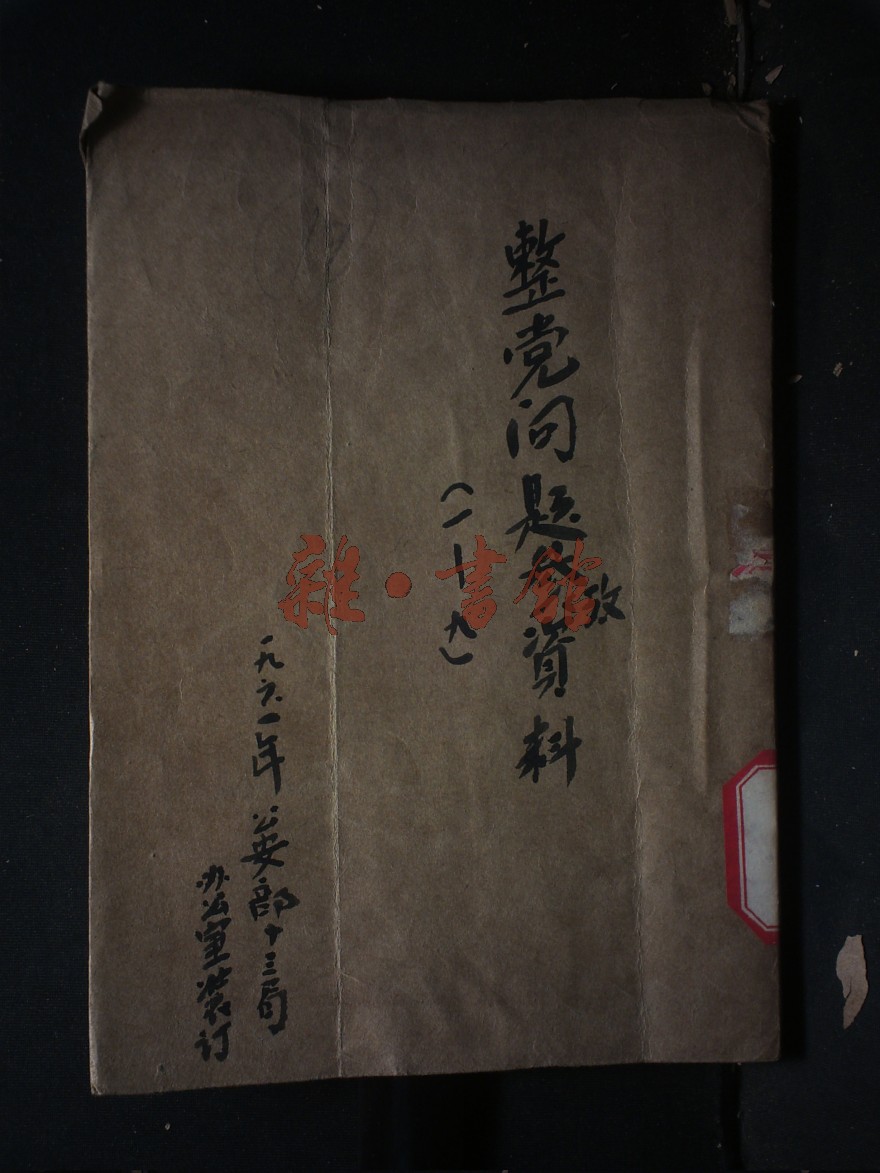 整党问题参攷資料
（一—九）
一九六一年公安部十三局
办公室装订
雜·書館